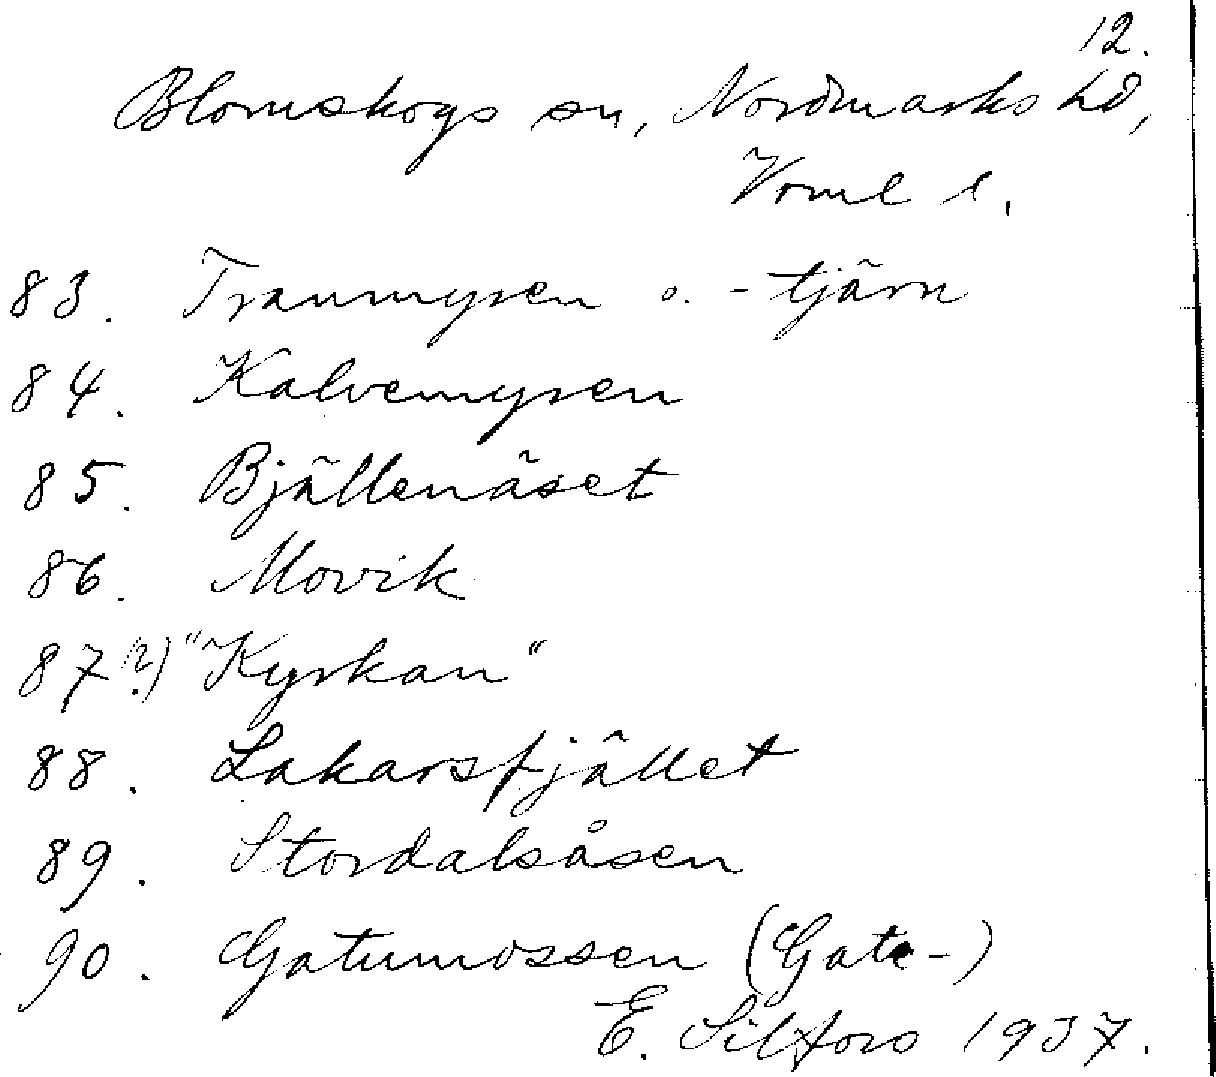 12.
Blomskogs sn, Nordmarks hd,
Verml l.
83. Tranmyren o. -tjärn
84. Kalvemyren
85. Bjällenäset
86. Movik
87 ?) "Kyrkan"
88. Lakarsfjället
89. Stordalsåsen
90. Gatumossen (Gate-)
E. Silfors 1937.